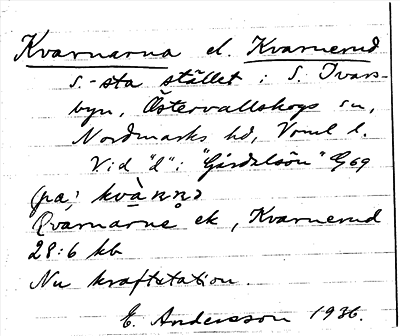 Kvarnarna el. Kvarnerud
s.-sta stället i S. Ivars-
byn, Östervallskogs sn,
Nordmarks hd, Vrml l.
Vid "d" i "Gärdsjön" G69
(pa; kvà nnɔ
Qvarnarne ek, Kvarnerud
28:6 kb
Nu kraftstation.
E. Andersson 1936.